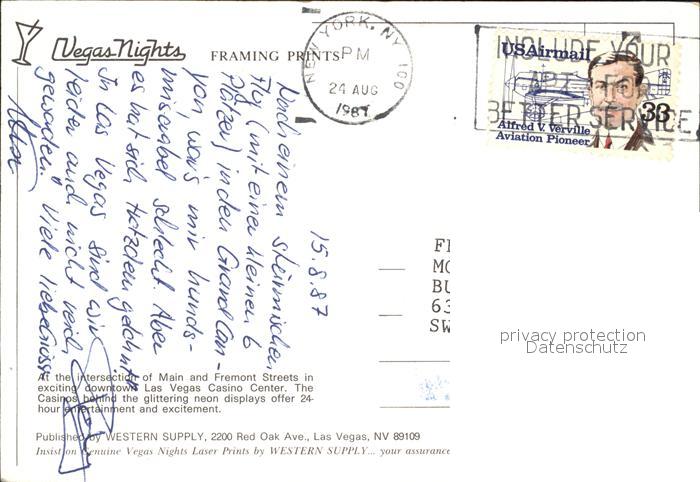 Vegas Nights
FRAMING PRINTS
NEW YORK, NY 100
PM
24 AUG
1987
INCLUDE YOUR
APT. FOR
BETTER SERVICE
USAirmail
33
Alfred V. Verville
Aviation Pioneer
15.8.87
Nach einem stürmischen
Flug (mit einer kleinen 6
Plätzer) in den Grand Can-
yon, war's mir hunds-
miserabel schlecht. Aber
es hat sich trotzdem gelohnt!
In Las Vegas sind wir
leider auch nicht reich
geworden. Viele liebe Grüsse
FI
MO
BU
63
SW
privacy protection
Datenschutz
At the intersection of Main and Fremont Streets in
exciting downtown Las Vegas Casino Center. The
Casinos behind the glittering neon displays offer 24-
hour entertainment and excitement.
Published by WESTERN SUPPLY, 2200 Red Oak Ave., Las Vegas, NV 89109
Insist on Genuine Vegas Nights Laser Prints by WESTERN SUPPLY... your assurance